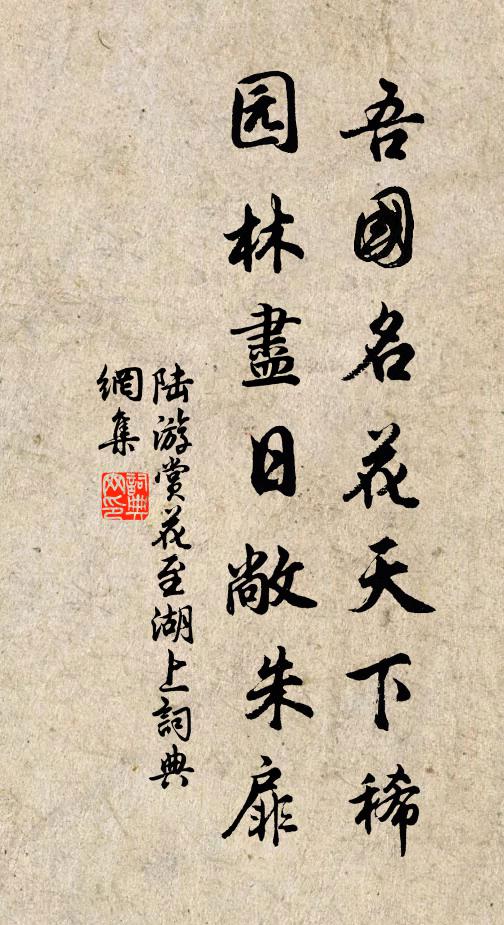 吾國名花天下稀
园林盡日敞朱扉
陆游赏花至湖上詞典
網集
詞典網印